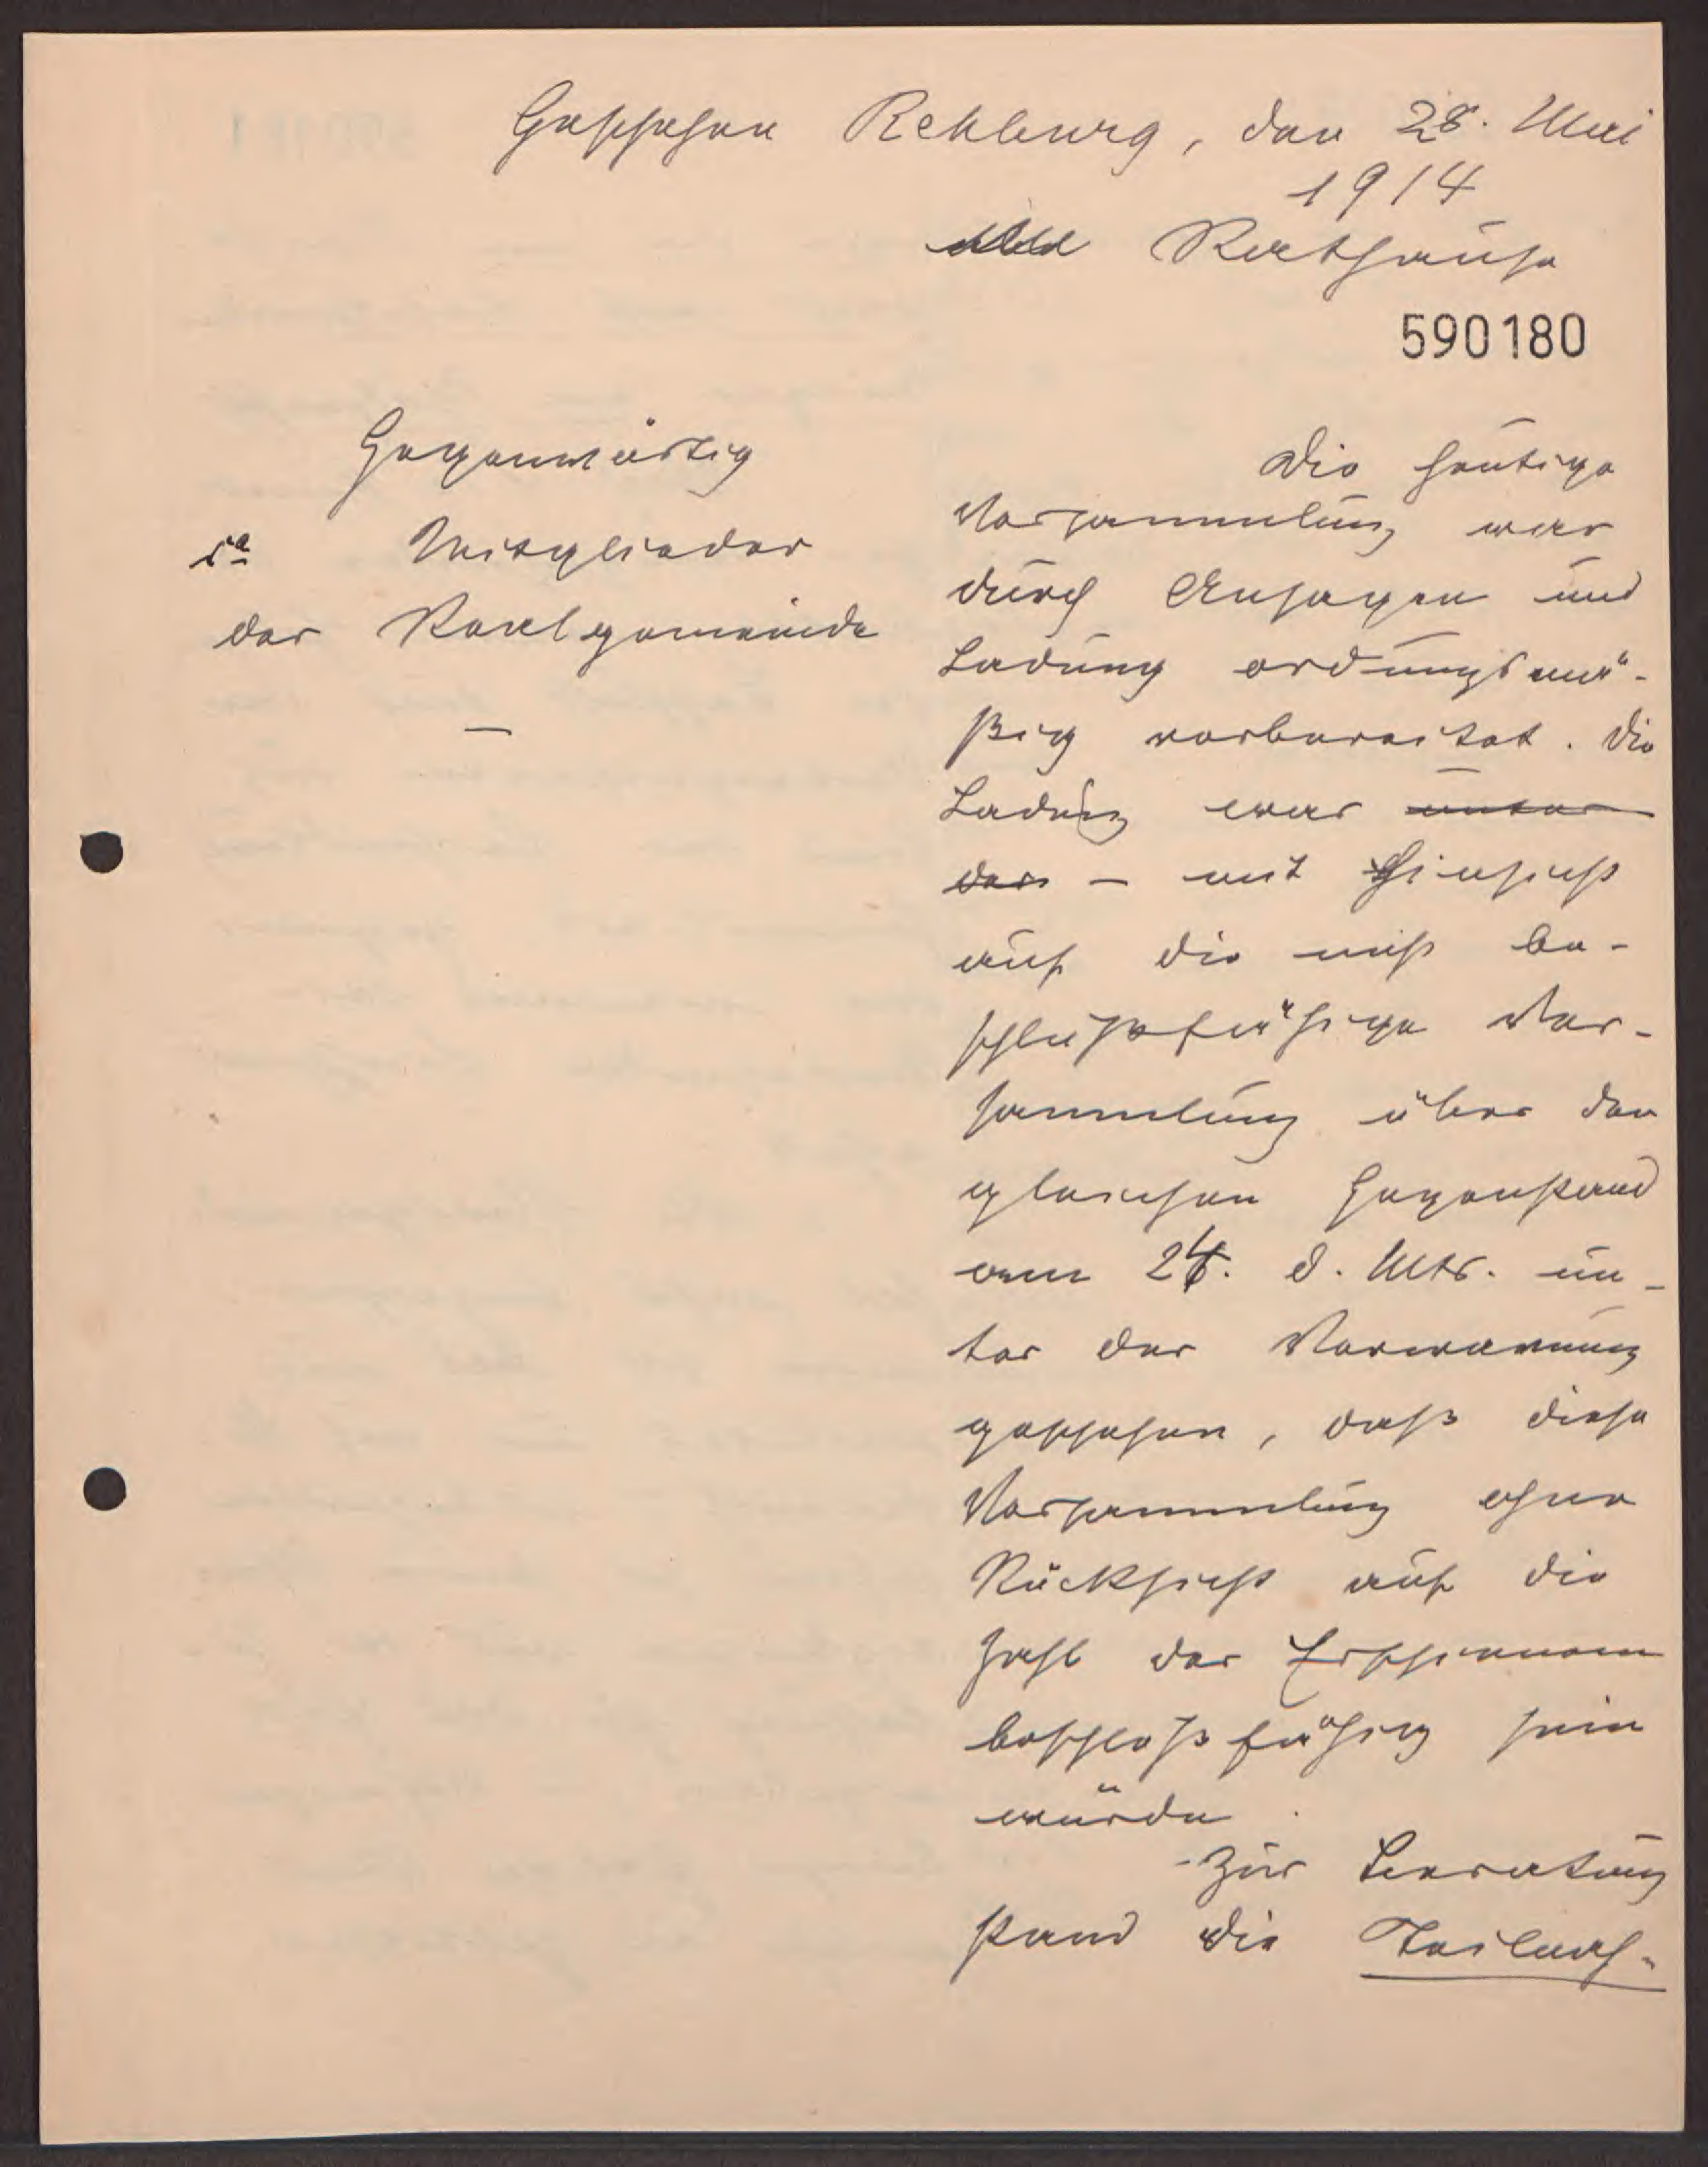 Geschehen Rehburg, den 28. Mai
1914
Rathause
590180
Gegenwärtig
Mitglieder
der Realgemeinde
—
Die heutige
Versammlung war
durch Ansagen und
Ladung ordungsmä-
ßig vorbereitet. Die
Ladung war unter
der – mit Hinsicht
auf die nicht be-
schlußfähige Ver-
sammlung über den
gleichen Gegenstand
am 24. d. Mts. un-
ter der Verwarnung
geschehen, daß diese
Versammlung ohne
Rücksicht auf die
Zahl der Erschienenen
beschlußfähig sein
würde.
Zur Beratung
stand die Teilung-